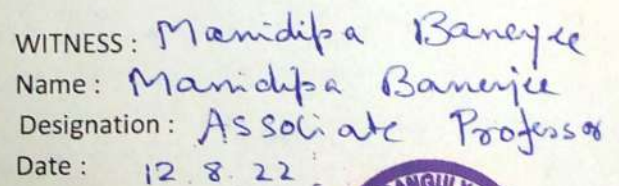 WITNESS : Manidipa Banerjee
Name : Manidipa Banerjee
Designation : Associate Professor
Date : 12.8.22